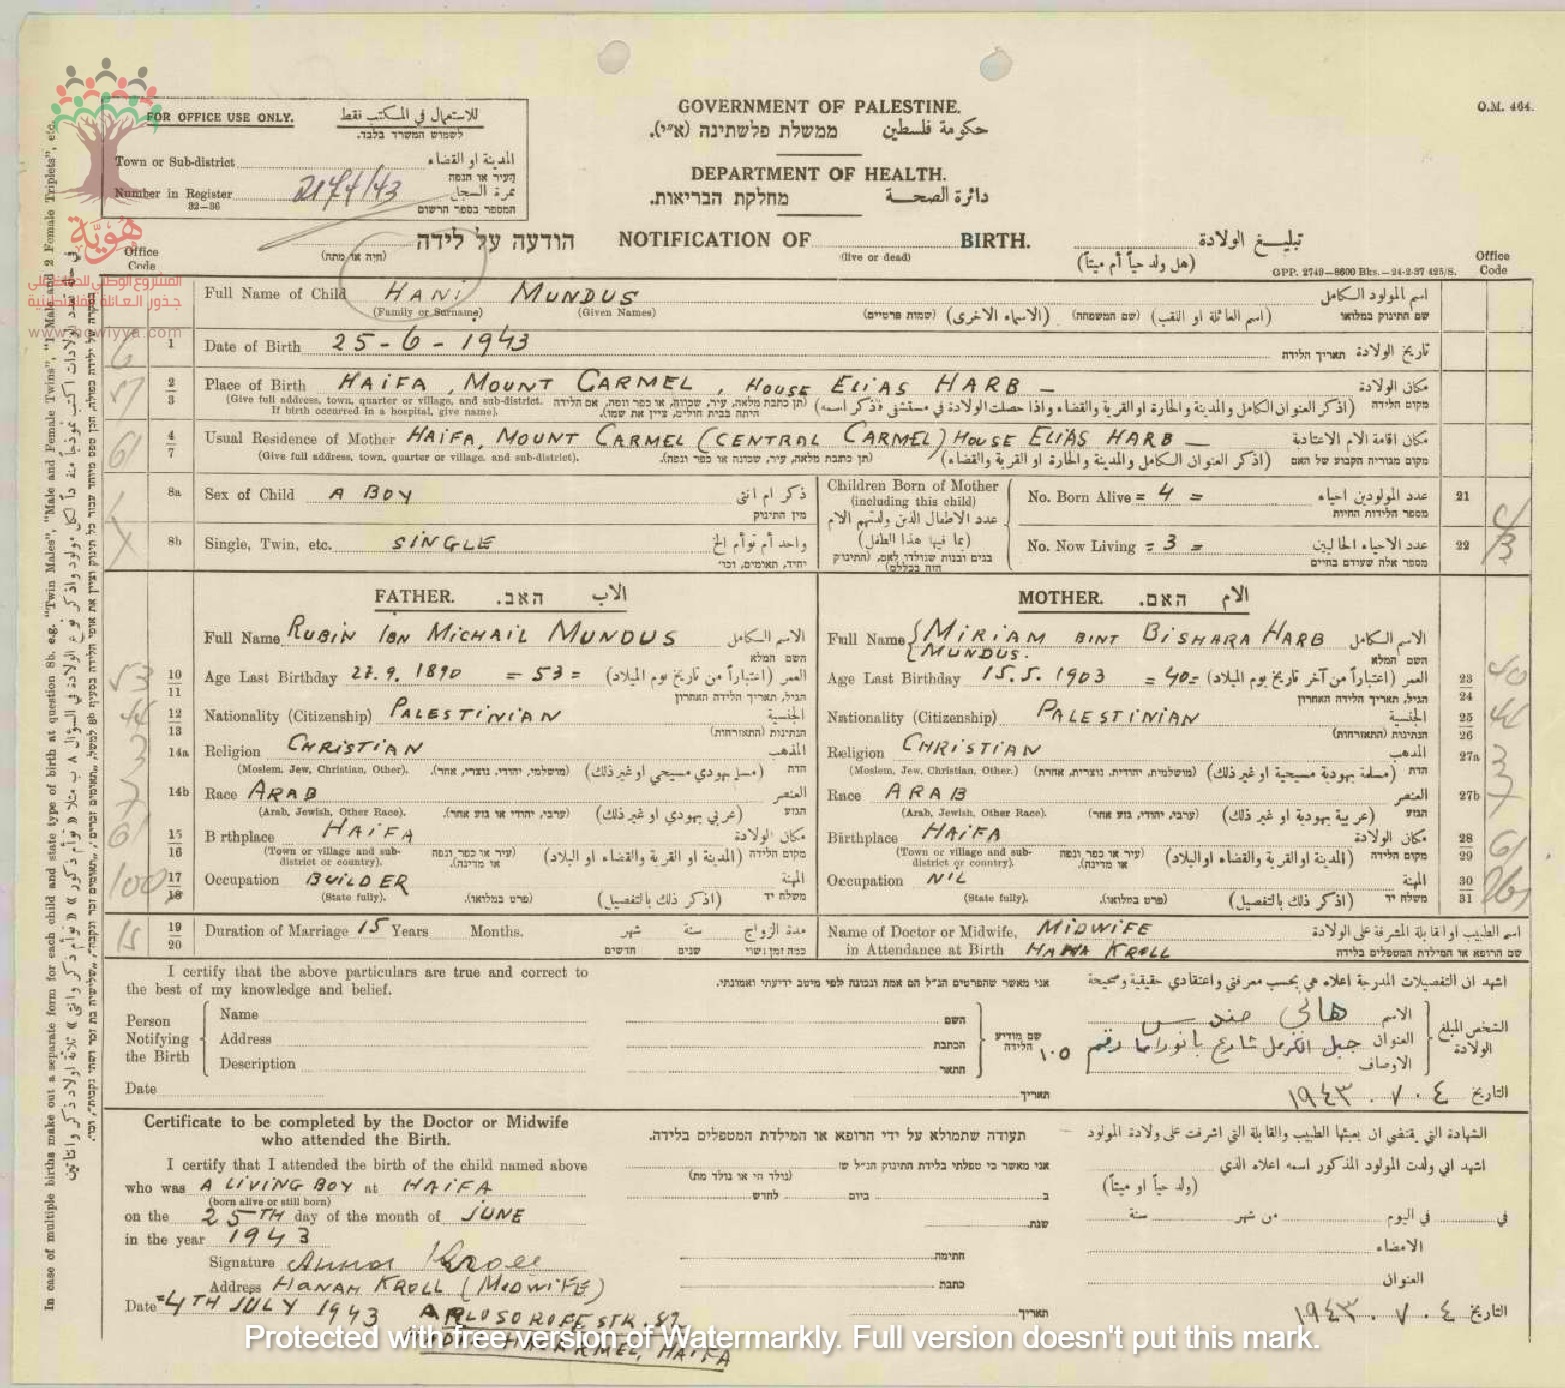 O.M. 464.
FOR OFFICE USE ONLY.
للاستعمال في المكتب فقط
לשמוש המשרד בלבד.
Town or Sub-district
المدينة او القضاء
העיר או הנפה
Number in Register 2174/43
نمرة السجل
32—36
המספר בספר הרשום
GOVERNMENT OF PALESTINE.
ממשלת פלשתינה (א״י). حكومة فلسطين
DEPARTMENT OF HEALTH.
מחלקת הבריאות. دائرة الصحة
הודעה על לידה NOTIFICATION OF BIRTH. تبليغ الولادة
(חיה או מתה) (live or dead) (هل ولد حياً أم ميتاً)
GPP. 2749—8600 Bks.—24-2-37 425/S.
Office Code
Office Code
هوية
المشروع الوطني للحفاظ على
جذور العائلة الفلسطينية
www.howiyya.com
Full Name of Child HANI MUNDUS اسم المولود الكامل
(Family or Surname) (Given Names) (שמות פרטיים) (الاسماء الاخرى) (שם המשפחה) (اسم العائلة او اللقب) שם התינוק במלואו
6 1 Date of Birth 25-6-1943 תאריך הלידה تاريخ الولادة
2 3 Place of Birth HAIFA, MOUNT CARMEL, HOUSE ELIAS HARB — مكان الولادة
(Give full address, town, quarter or village, and sub-district. If birth occurred in a hospital, give name).
(תן כתבת מלאה, עיר, שכונה, או כפר ונפה, אם הלידה היתה בבית חולים, ציין את שמו).
(اذكر العنوان الكامل والمدينة والحارة او القرية والقضاء واذا حصلت الولادة في مستشفى فاذكر اسمه) מקום הלידה
61 4 7 Usual Residence of Mother HAIFA, MOUNT CARMEL (CENTRAL CARMEL) HOUSE ELIAS HARB — مكان اقامة الام الاعتيادية
(Give full address, town, quarter or village, and sub-district). (תן כתבת מלאה, עיר, שכונה או כפר ונפה). (اذكر العنوان الكامل والمدينة والحارة او القرية والقضاء) מקום מגוריה הקבוע של האם
8a Sex of Child A BOY ذكر ام انثى
מין התינוק
8b Single, Twin, etc. SINGLE واحد أم توأم الخ
יחיד, תאומים, וכו׳
Children Born of Mother (including this child)
عدد الاطفال الذين ولدتهم الام (بما فيها هذا الطفل)
בנים ובנות שנולדו לאם, (התינוק הזה בכלל)
No. Born Alive = 4 = عدد المولودين احياء 21 4
מספר הלידות החיות
No. Now Living = 3 = عدد الاحياء الحاليين 22 3
מספר אלה שעודם בחיים
FATHER. האב. الاب
Full Name RUBIN IBN MICHAIL MUNDUS الاسم الكامل
השם המלא
53 10 11 Age Last Birthday 27.9.1890 = 53 = العمر (اعتباراً من تاريخ يوم الميلاد)
הגיל, תאריך הלידה האחרון
44 12 13 Nationality (Citizenship) PALESTINIAN الجنسية
הנתינות (האזרחות)
3 14a Religion CHRISTIAN المذهب
(Moslem, Jew, Christian, Other). (מושלמי, יהודי, נוצרי, אחר). (مسلم يهودي مسيحي او غير ذلك) הדת
14b Race ARAB العنصر
(Arab, Jewish, Other Race). (ערבי, יהודי או גזע אחר). (عربي يهودي او غير ذلك) הגזע
61 15 16 Birthplace HAIFA مكان الولادة
(Town or village and sub-district or country). (עיר או כפר ונפה או מדינה). (المدينة او القرية والقضاء او البلاد) מקום הלידה
100 17 18 Occupation BUILDER المهنة
(State fully). (פרט במלואו). (اذكر ذلك بالتفصيل) משלח יד
MOTHER. האם. الام
Full Name MIRIAM BINT BISHARA HARB MUNDUS. الاسم الكامل
השם המלא
Age Last Birthday 15.5.1903 = 40 = العمر (اعتباراً من آخر تاريخ يوم الميلاد) 23 24 40
הגיל, תאריך הלידה האחרון
Nationality (Citizenship) PALESTINIAN الجنسية 25 26 44
הנתינות (האזרחות)
Religion CHRISTIAN المذهب 27a 3
(Moslem, Jew, Christian, Other.) (מושלמית, יהודית, נוצרית, אחרת) (مسلمة يهودية مسيحية او غير ذلك) הדת
Race ARAB العنصر 27b
(Arab, Jewish, Other Race). (ערבי, יהודי או גזע אחר). (عربية يهودية او غير ذلك) הגזע
Birthplace HAIFA مكان الولادة 28 29 61
(Town or village and sub-district or country). (עיר או כפר ונפה או מדינה). (المدينة او القرية والقضاء او البلاد) מקום הלידה
Occupation NIL المهنة 30 31
(State fully). (פרט במלואו). (اذكر ذلك بالتفصيل) משלח יד
15 19 20 Duration of Marriage 15 Years Months. شهر سنة مدة الزواج
חדשים שנים כמה זמן נשוי
Name of Doctor or Midwife, MIDWIFE اسم الطبيب او القابلة المشرفة على الولادة
in Attendance at Birth HANA KROLL שם הרופא או המילדת המטפלים בלידה
I certify that the above particulars are true and correct to the best of my knowledge and belief.
אני מאשר שהפרטים הנ״ל הם אמת ונכונה לפי מיטב ידיעתי ואמונתי.
اشهد ان التفصيلات المدرجة اعلاه هي بحسب معرفتي واعتقادي حقيقية وصحيحة
Person Notifying the Birth
Name השם الاسم هاني مندس
Address הכתבת العنوان جبل الكرمل شارع بانوراما رقم ١٠٥
Description התאר الاوصاف
שם מודיע הלידה
الشخص المبلغ الولادة
Date תאריך التاريخ ٤ . ٧ . ١٩٤٣
Certificate to be completed by the Doctor or Midwife who attended the Birth.
תעודה שתמולא על ידי הרופא או המילדת המטפלים בלידה.
الشهادة التي يقتضي ان يعبئها الطبيب والقابلة التي اشرفت على ولادة المولود
I certify that I attended the birth of the child named above
who was A LIVING BOY at HAIFA
(born alive or still born)
on the 25TH day of the month of JUNE
in the year 1943
Signature Anna Kroll
Address HANAH KROLL (MIDWIFE)
Date = 4TH JULY 1943 ARLOSOROFF STR. 87
HACARMEL, HAIFA
אני מאשר כי טפלתי בלידת התינוק הנ״ל ש
(נולד חי או נולד מת)
ב ביום לחדש
שנת
חתימה
כתבת
תאריך
اشهد اني ولدت المولود المذكور اسمه اعلاه الذي
(ولد حياً او ميتاً)
في في اليوم من شهر سنة
الامضاء
العنوان
التاريخ ٤ . ٧ . ١٩٤٣
In case of multiple births make out a separate form for each child and state type of birth at question 8b. e.g. "Twin Males", "Male and Female Twins", "1 Male and 2 Female Triplets", etc.
Protected with free version of Watermarkly. Full version doesn't put this mark.